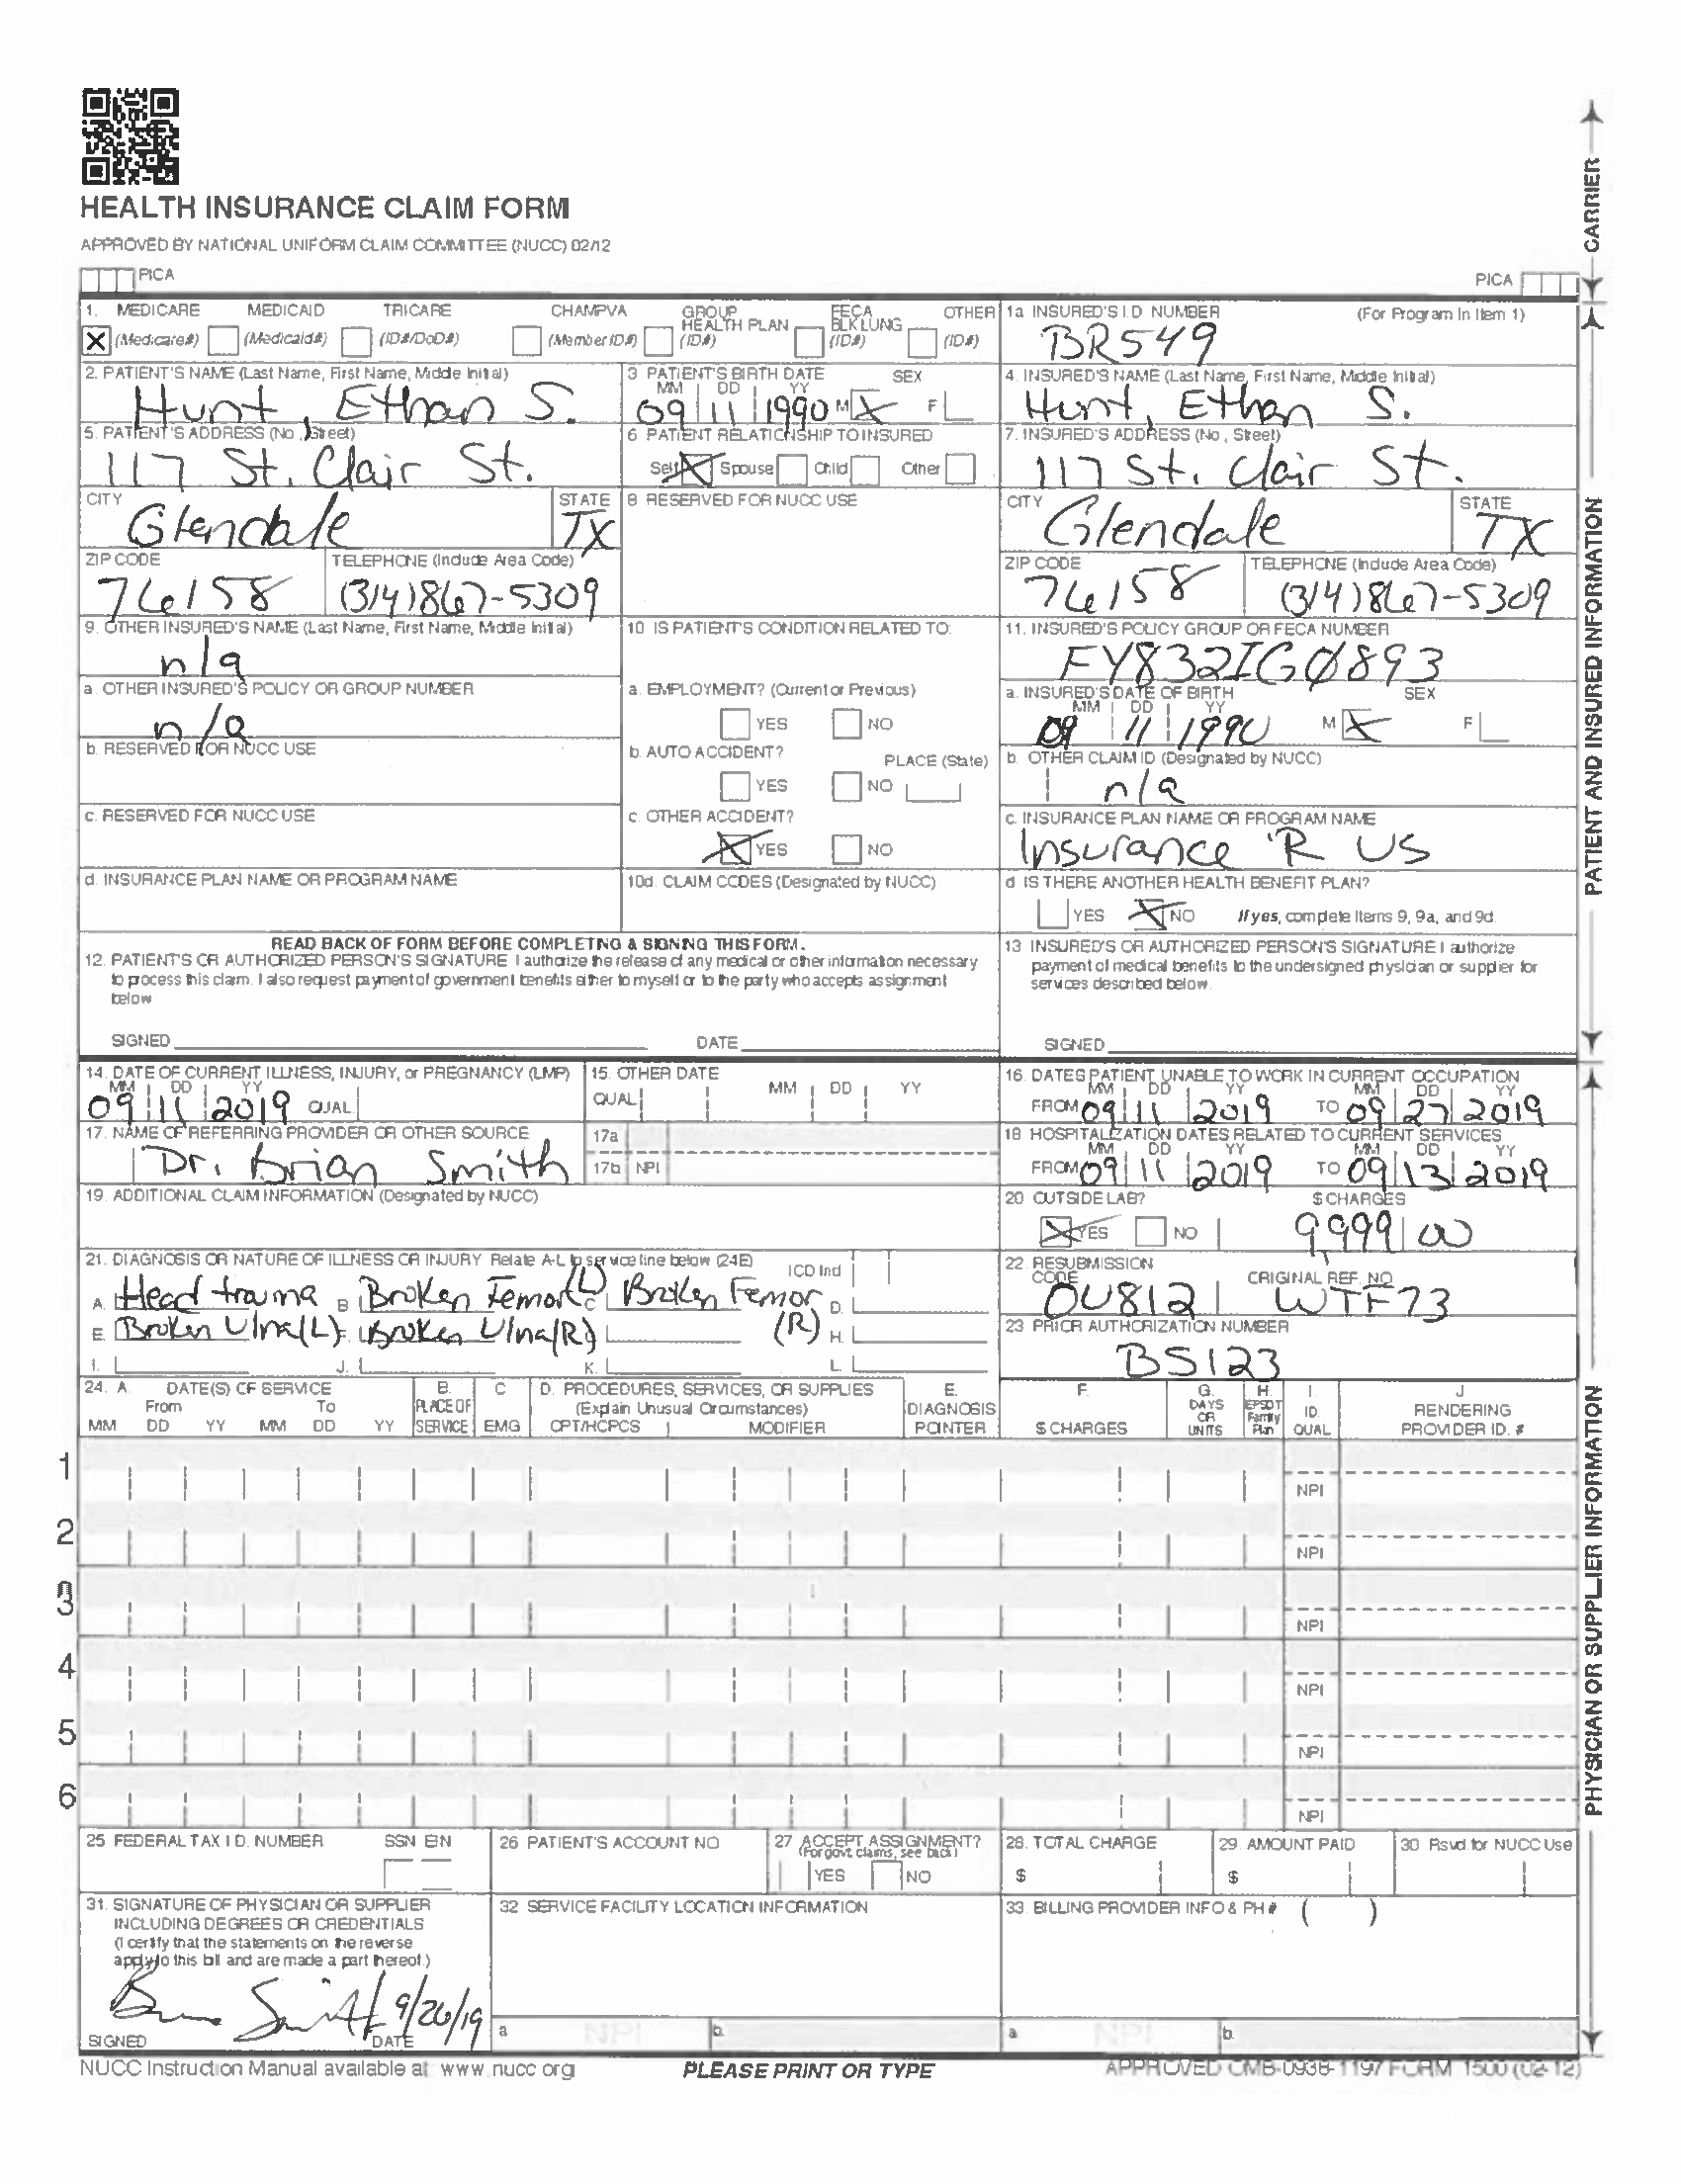 HEALTH INSURANCE CLAIM FORM
APPROVED BY NATIONAL UNIFORM CLAIM COMMITTEE (NUCC) 02/12
PICA
PICA
CARRIER
1. MEDICARE MEDICAID TRICARE CHAMPVA GROUP HEALTH PLAN FECA BLK LUNG OTHER
X (Medicare#) (Medicaid#) (ID#/DoD#) (Member ID#) (ID#) (ID#) (ID#)
1a INSURED'S I.D NUMBER (For Program In Item 1)
BR549
2. PATIENT'S NAME (Last Name, First Name, Middle Initial)
Hunt, Ethan S.
3 PATIENT'S BIRTH DATE SEX
MM DD YY
09 11 1990 M X F
4. INSURED'S NAME (Last Name, First Name, Middle Initial)
Hunt, Ethan S.
5. PATIENT'S ADDRESS (No , Street)
117 St. Clair St.
6 PATIENT RELATIONSHIP TO INSURED
Self X Spouse Child Other
7. INSURED'S ADDRESS (No , Street)
117 St. Clair St.
CITY STATE
Glendale TX
8 RESERVED FOR NUCC USE
CITY STATE
Glendale TX
ZIP CODE TELEPHONE (Include Area Code)
76158 (314)867-5309
ZIP CODE TELEPHONE (Include Area Code)
76158 (314)867-5309
9. OTHER INSURED'S NAME (Last Name, First Name, Middle Initial)
n/a
10 IS PATIENT'S CONDITION RELATED TO:
11. INSURED'S POLICY GROUP OR FECA NUMBER
FY832IG0893
a. OTHER INSURED'S POLICY OR GROUP NUMBER
n/a
a. EMPLOYMENT? (Current or Previous)
YES NO
a. INSURED'S DATE OF BIRTH SEX
MM DD YY
09 11 1990 M X F
b. RESERVED FOR NUCC USE
b. AUTO ACCIDENT? PLACE (State)
YES NO
b. OTHER CLAIM ID (Designated by NUCC)
n/a
c. RESERVED FOR NUCC USE
c. OTHER ACCIDENT?
X YES NO
c. INSURANCE PLAN NAME OR PROGRAM NAME
Insurance 'R US
d. INSURANCE PLAN NAME OR PROGRAM NAME
10d. CLAIM CODES (Designated by NUCC)
d IS THERE ANOTHER HEALTH BENEFIT PLAN?
YES X NO If yes, complete Items 9, 9a, and 9d.
PATIENT AND INSURED INFORMATION
READ BACK OF FORM BEFORE COMPLETING & SIGNING THIS FORM.
12. PATIENT'S OR AUTHORIZED PERSON'S SIGNATURE I authorize the release of any medical or other information necessary
to process this claim. I also request payment of government benefits either to myself or to the party who accepts assignment
below
SIGNED DATE
13 INSURED'S OR AUTHORIZED PERSON'S SIGNATURE I authorize
payment of medical benefits to the undersigned physician or supplier for
services described below.
SIGNED
14. DATE OF CURRENT ILLNESS, INJURY, or PREGNANCY (LMP)
MM DD YY
09 11 2019 QUAL
15. OTHER DATE
QUAL MM DD YY
16. DATES PATIENT UNABLE TO WORK IN CURRENT OCCUPATION
MM DD YY MM DD YY
FROM 09 11 2019 TO 09 27 2019
17. NAME OF REFERRING PROVIDER OR OTHER SOURCE
Dr. Brian Smith
17a
17b NPI
18 HOSPITALIZATION DATES RELATED TO CURRENT SERVICES
MM DD YY MM DD YY
FROM 09 11 2019 TO 09 13 2019
19. ADDITIONAL CLAIM INFORMATION (Designated by NUCC)
20 OUTSIDE LAB? $ CHARGES
X YES NO 9999 00
21. DIAGNOSIS OR NATURE OF ILLNESS OR INJURY Relate A-L to service line below (24E) ICD Ind
A. Head trauma B Broken Femor (L) C Broken Femor (R) D.
E. Broken Ulna(L) F. Broken Ulna(R) H.
I. J. K. L.
22 RESUBMISSION
CODE ORIGINAL REF. NO
OU812 WTF73
23 PRIOR AUTHORIZATION NUMBER
BS123
24. A. DATE(S) OF SERVICE B. C D. PROCEDURES, SERVICES, OR SUPPLIES E. F. G. H. I. J
From To PLACE OF (Explain Unusual Circumstances) DIAGNOSIS DAYS OR EPSDT Family ID. RENDERING
MM DD YY MM DD YY SERVICE EMG CPT/HCPCS MODIFIER POINTER $ CHARGES UNITS Plan QUAL PROVIDER ID. #
1 NPI
2 NPI
3 NPI
4 NPI
5 NPI
6 NPI
PHYSICIAN OR SUPPLIER INFORMATION
25 FEDERAL TAX I D. NUMBER SSN EIN
26 PATIENT'S ACCOUNT NO
27 ACCEPT ASSIGNMENT?
(For govt claims, see back)
YES NO
28. TOTAL CHARGE
$
29. AMOUNT PAID
$
30 Rsvd for NUCC Use
31. SIGNATURE OF PHYSICIAN OR SUPPLIER
INCLUDING DEGREES OR CREDENTIALS
(I certify that the statements on the reverse
apply to this bill and are made a part thereof.)
Smith 9/26/19
SIGNED DATE
32 SERVICE FACILITY LOCATION INFORMATION
a NPI b.
33. BILLING PROVIDER INFO & PH # ( )
a NPI b.
NUCC Instruction Manual available at: www.nucc.org
PLEASE PRINT OR TYPE
APPROVED OMB-0938-1197 FORM 1500 (02-12)